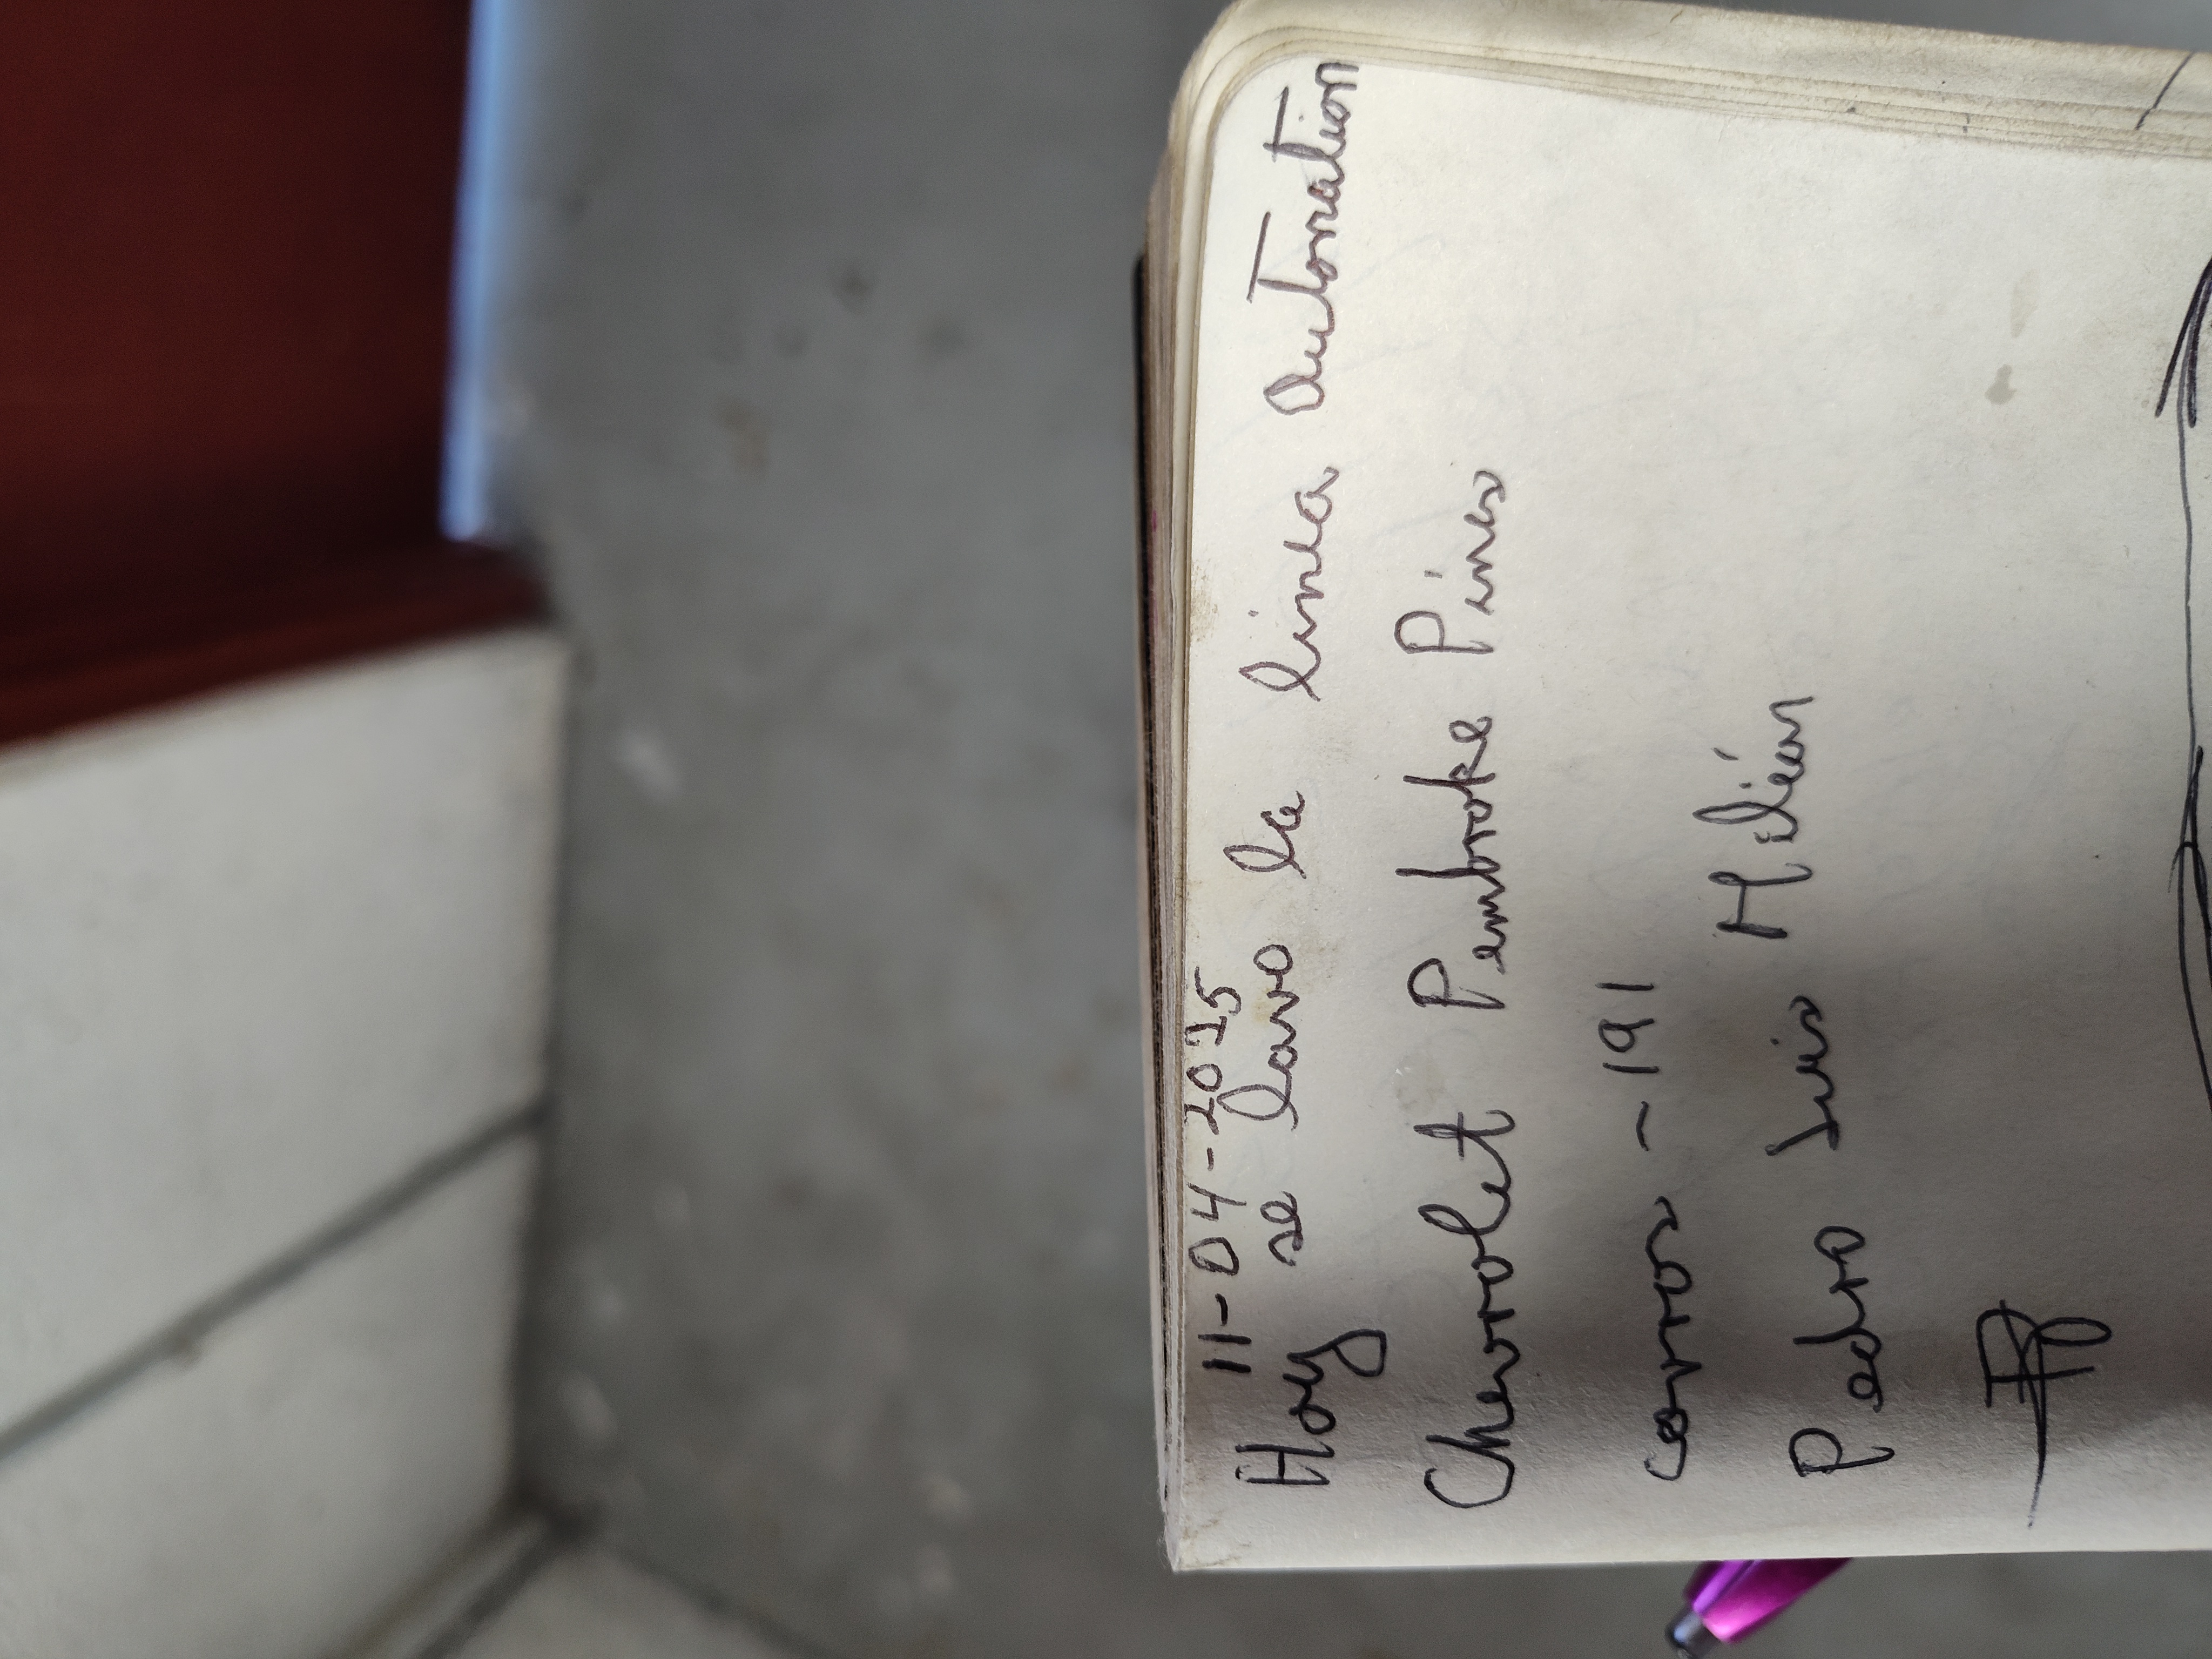 11-04-2025
Hoy se lavo la linea Automation
Chevrolet Pembroke Pines
carros - 191
Pedro Luis Melián